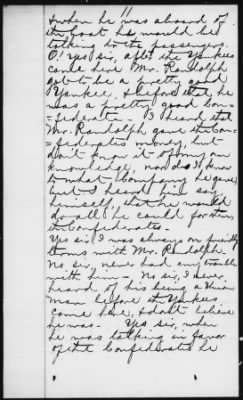 11
& when he was aboard of
the boat he would be
talking to the passengers.
O! yes sir, after the Yankees
came here Mr. Randolph
got to be a pretty good
Yankee, & before that he
was a pretty good Con=
=federate. I heard that
Mr. Randolph gave the Con=
=federates money, but
don't know it of my own
knowledge, nor do I know
to what he gave,
but I heard him say
himself, that he would
do all he could for them
the Confederates.
Yes sir I was always on friendly
terms with Mr. Randolph.
No sir, never had any trouble
with him. No sir, I never
heard of his being a Union
man before the Yankees
came here, & don't believe
he was. Yes sir, when
he was talking in favor
of the Confederates he